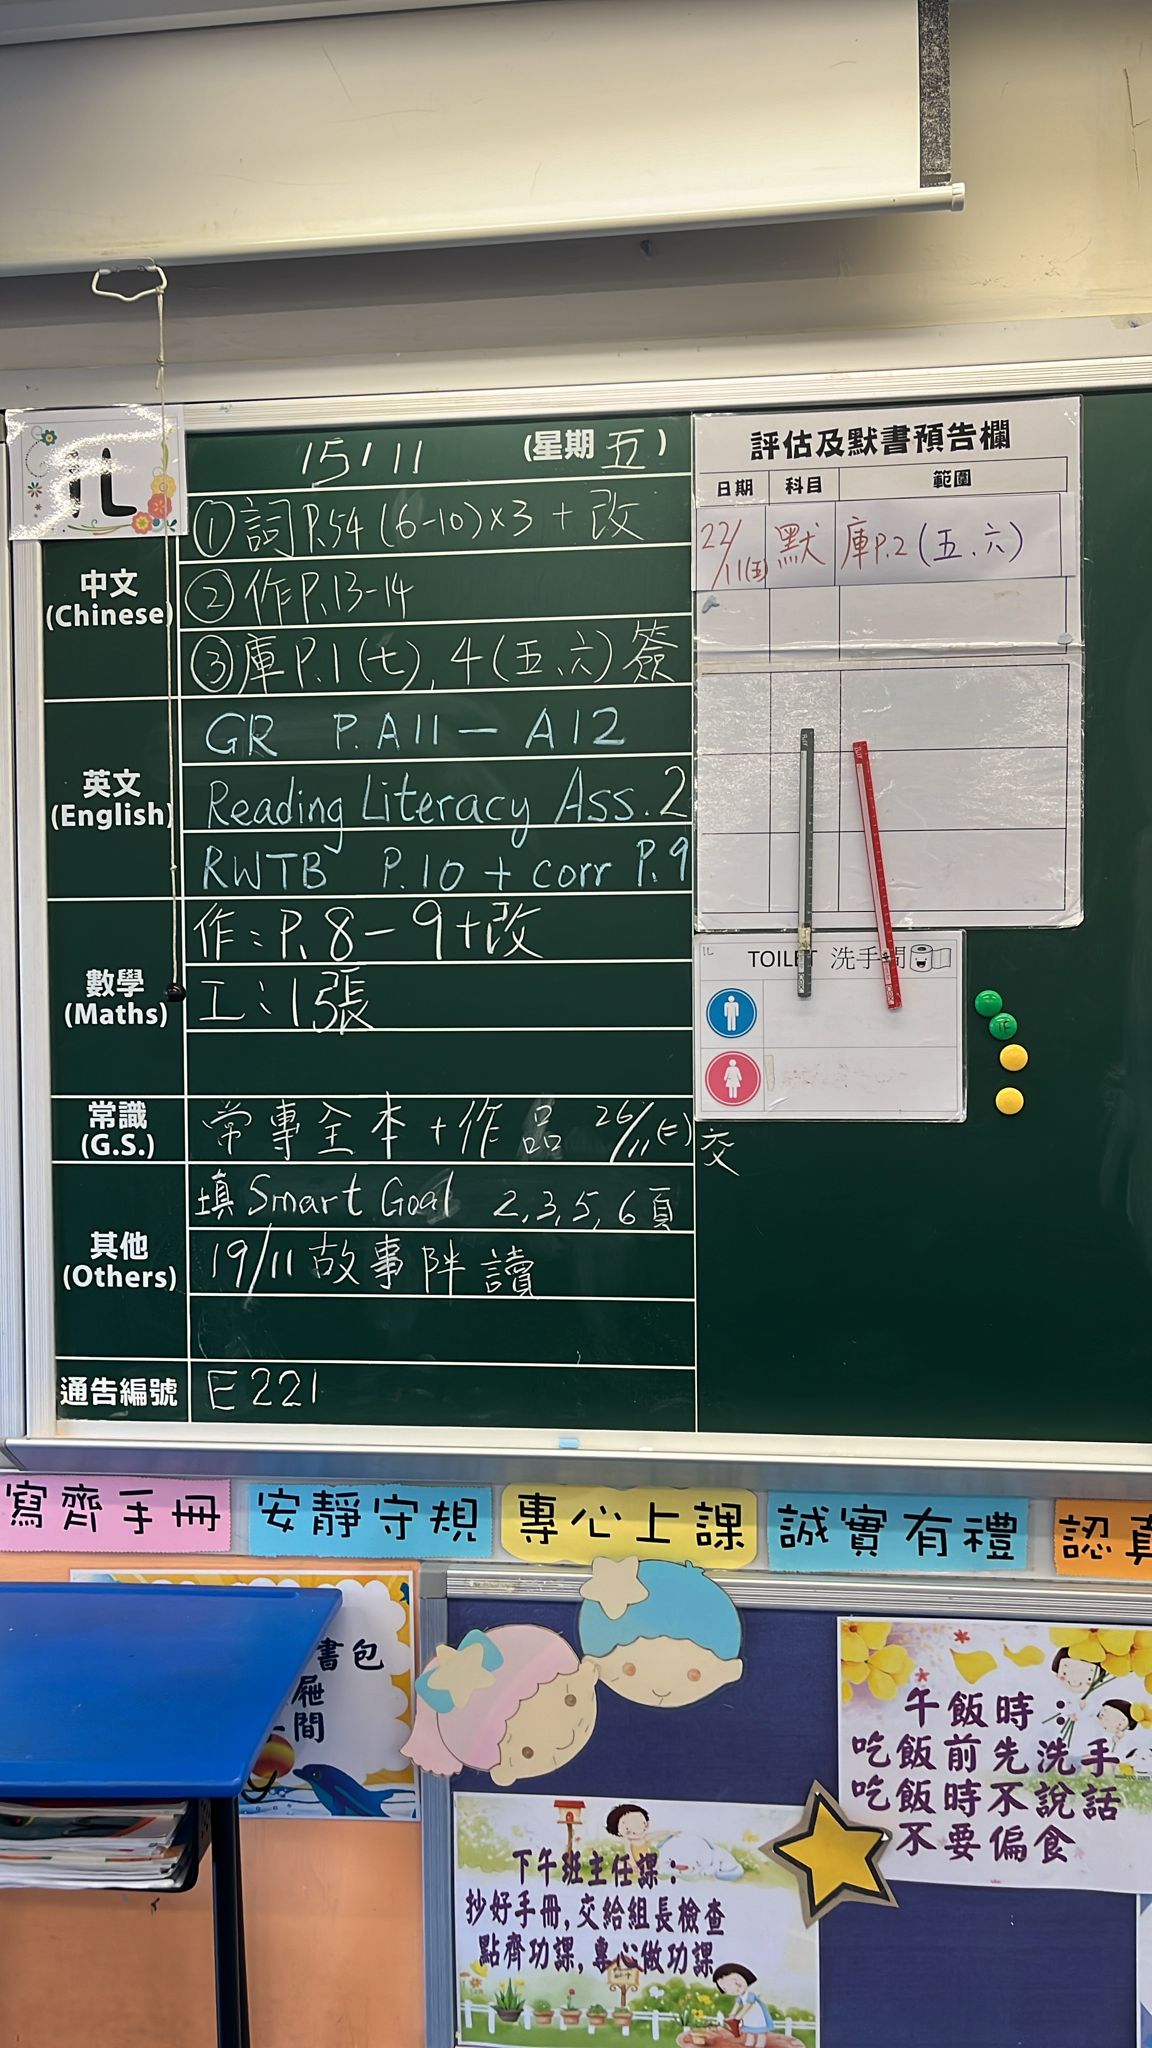 1L
15/11 (星期五)
中文
(Chinese)
①詞P.54(6-10)×3+改
②作P.13-14
③庫P.1(七),4(五、六)簽
英文
(English)
GR P.A11-A12
Reading Literacy Ass.2
RWTB P.10+corr P.9
數學
(Maths)
作:P.8-9+改
工:1張
常識
(G.S.)
常專全本+作品 26/11(二)交
其他
(Others)
填Smart Goal 2,3,5,6頁
19/11故事伴讀
通告編號
E221
評估及默書預告欄
日期 科目 範圍
22/11(五) 默 庫P.2(五、六)
1L
TOILET 洗手間
寫齊手冊
安靜守規
專心上課
誠實有禮
認真
書包
屜
間
午飯時:
吃飯前先洗手
吃飯時不說話
不要偏食
下午班主任課:
抄好手冊,交給組長檢查
點齊功課,專心做功課